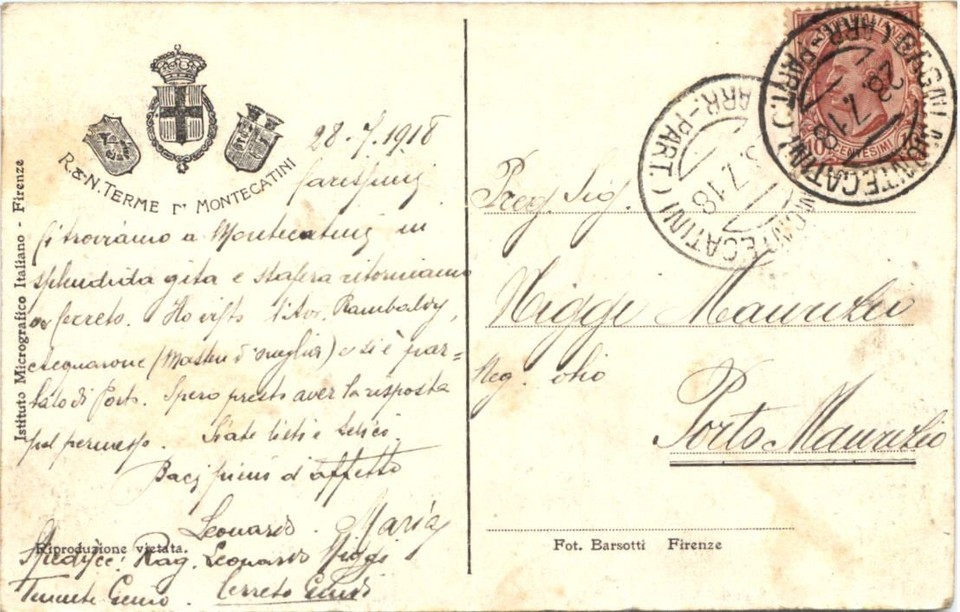 R.R. N. TERME DI MONTECATINI
28-7-1918
Carissimi
Ci troviamo a Montecatini in
splendida gita e stasera ritorniamo
a Cerreto. Ho visto l'Avv. Rambaldi,
Acquarone (Massim d'Oneglia) e si è par=
lato di Porto. Spero presto aver la risposta
pel permesso. State lieti e felici.
Bacissimi d'affetto
Leonardo. Maria
Riproduzione vietata.
Spedisce: Rag. Leonardo
Tenente Genio. Cerreto Guidi
Istituto Micrografico Italiano - Firenze
10 CENTESIMI 10
BAGNI DI MONTECATINI
(ARR.-PART.)
28.7.18
BAGNI DI MONTECATINI
(ARR.-PART.)
7.18
Preg. Sig.
Maurizio
Neg. olio
Porto Maurizio
Fot. Barsotti Firenze